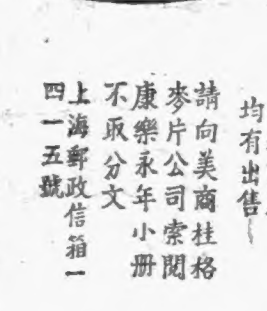 均有出售
請向美商桂格
麥片公司索閱
康樂永年小册
不取分文
上海郵政信箱一
四一五號